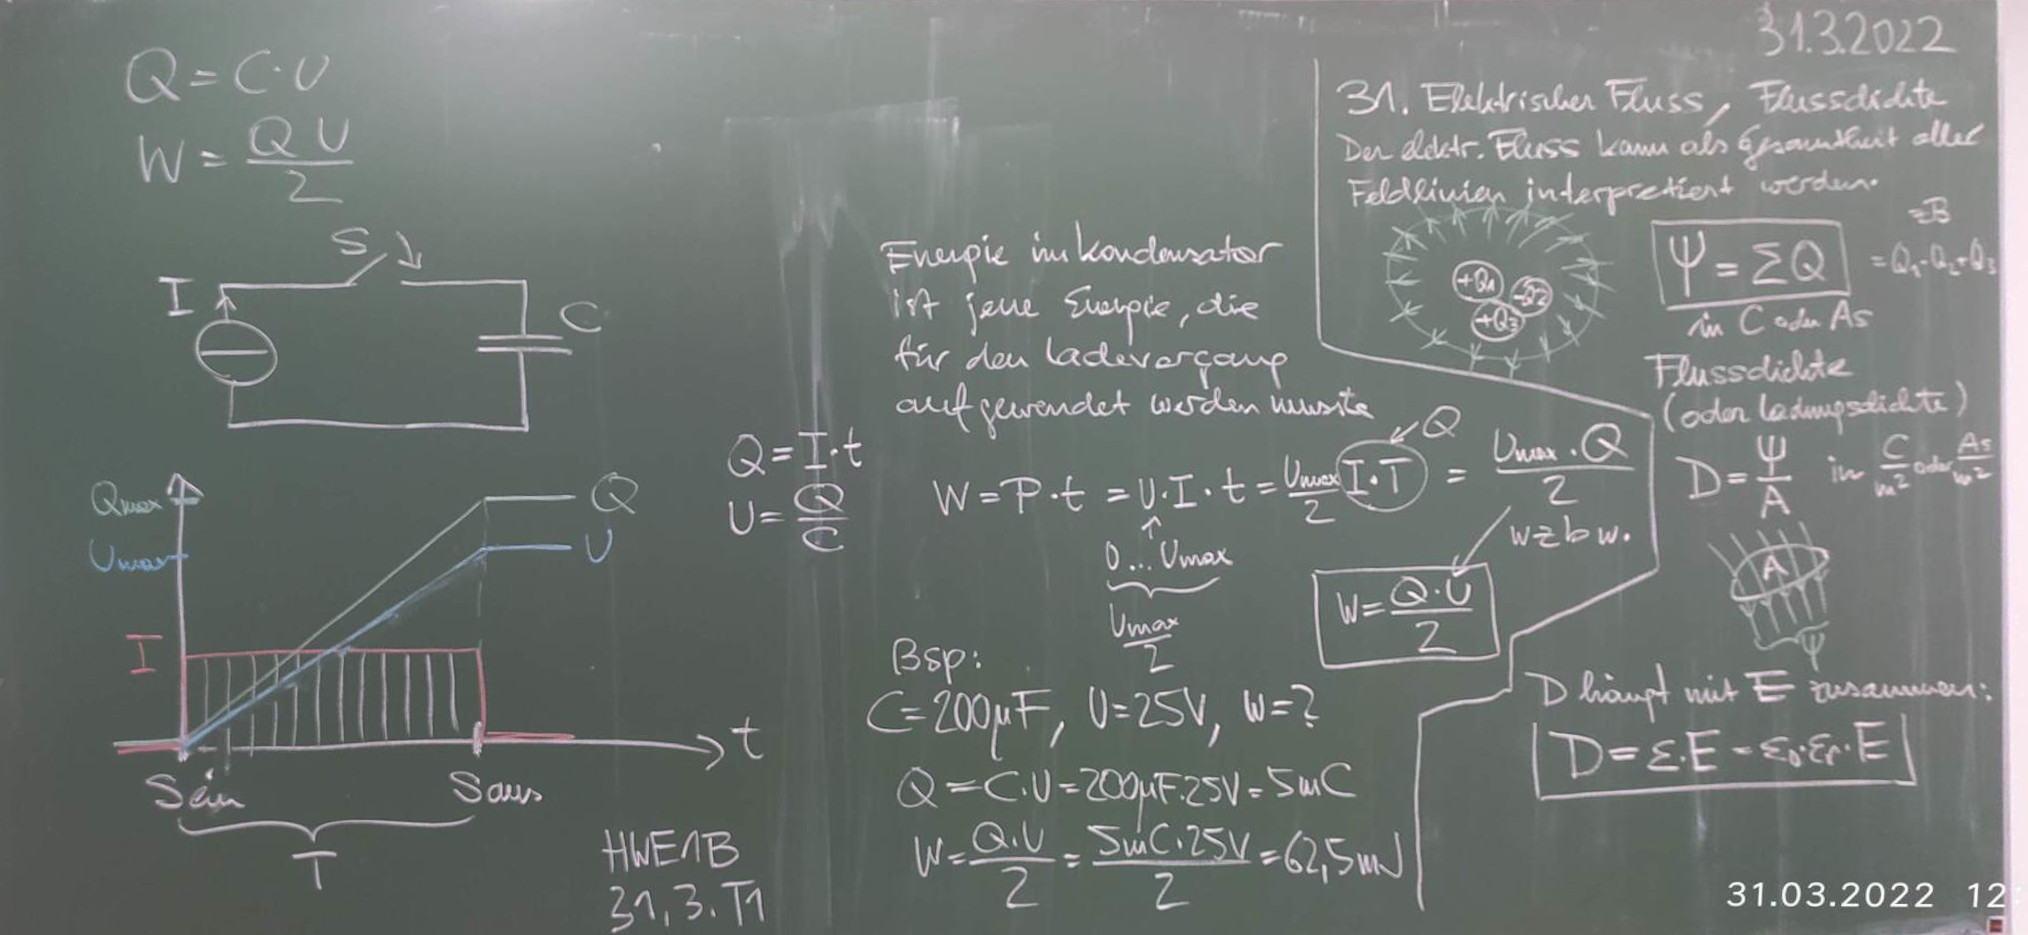 Q = C·U
W = Q U / 2
S
I
C
Qmax
Umax
I
Q
U
t
Sein
Saus
T
HWE1B
31.3. T1
Q = I·t
U = Q / C
Energie im Kondensator
ist jene Energie, die
für den Ladevorgang
aufgewendet werden musste
W = P·t = U·I·t = Umax / 2 I·T = Umax·Q / 2
Q
0...Umax
Umax / 2
wzbw.
W = Q·U / 2
Bsp:
C = 200µF, U = 25V, W = ?
Q = C·U = 200µF·25V = 5mC
W = Q·U / 2 = 5mC·25V / 2 = 62,5mJ
31.3.2022
31. Elektrischer Fluss, Flussdichte
Der elektr. Fluss kann als Gesamtheit aller
Feldlinien interpretiert werden.
+Q1
-Q2
+Q3
Ψ = ΣQ
= Q1-Q2+Q3
in C oder As
Flussdichte
(oder Ladungsdichte)
D = Ψ / A in C / m² oder As / m²
A
Ψ
D hängt mit E zusammen:
D = ε·E = ε0·εr·E
31.03.2022 12: